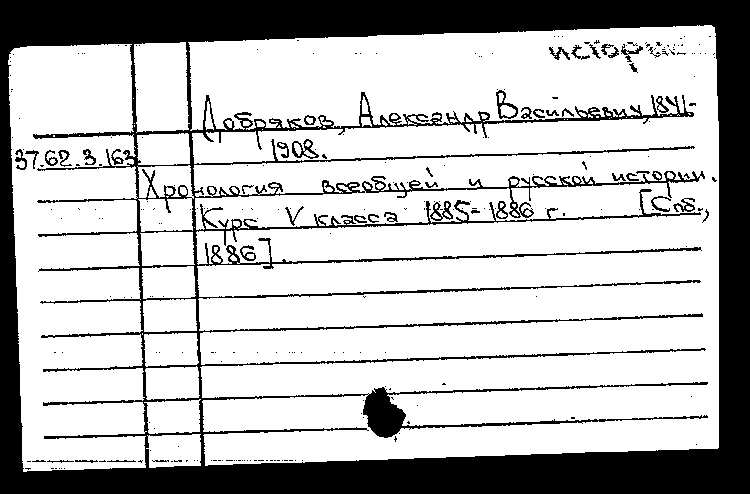 истории
Добряков, Александр Васильевич, 1841-
1908.
37.62.3.163.
Хронология всеобщей и русской истории.
Курс V класса 1885-1886 г. [Спб.,
1886].